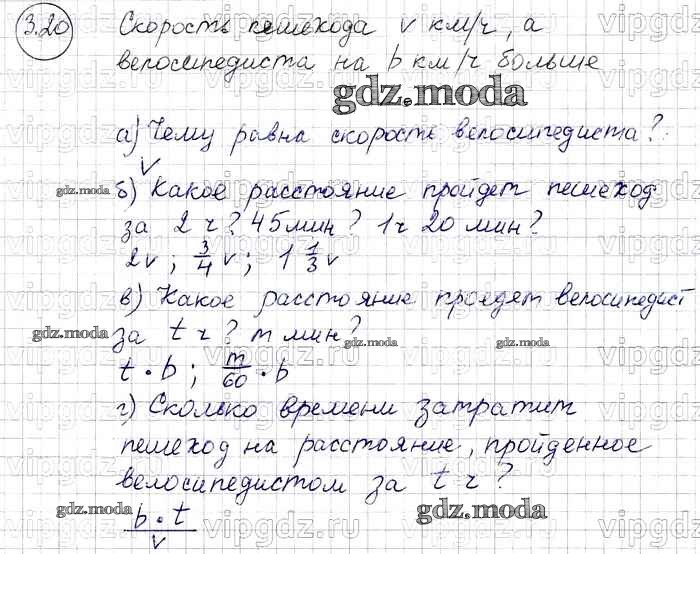 3.20 Скорость пешехода v км/ч, а
велосипедиста на b км/ч больше
gdz.moda
а) Чему равна скорость велосипедиста?
v
gdz.moda б) Какое расстояние пройдет пешеход
за 2 ч? 45 мин? 1 ч 20 мин?
2v ; 3/4 v ; 1 1/3 v
в) Какое расстояние проедет велосипедист
gdz.moda за t ч? m мин? gdz.moda gdz.moda
t · b ; m/60 · b
г) Сколько времени затратит
пешеход на расстояние, пройденное
велосипедистом за t ч?
gdz.moda b · t / v gdz.moda
vipgdz.ru